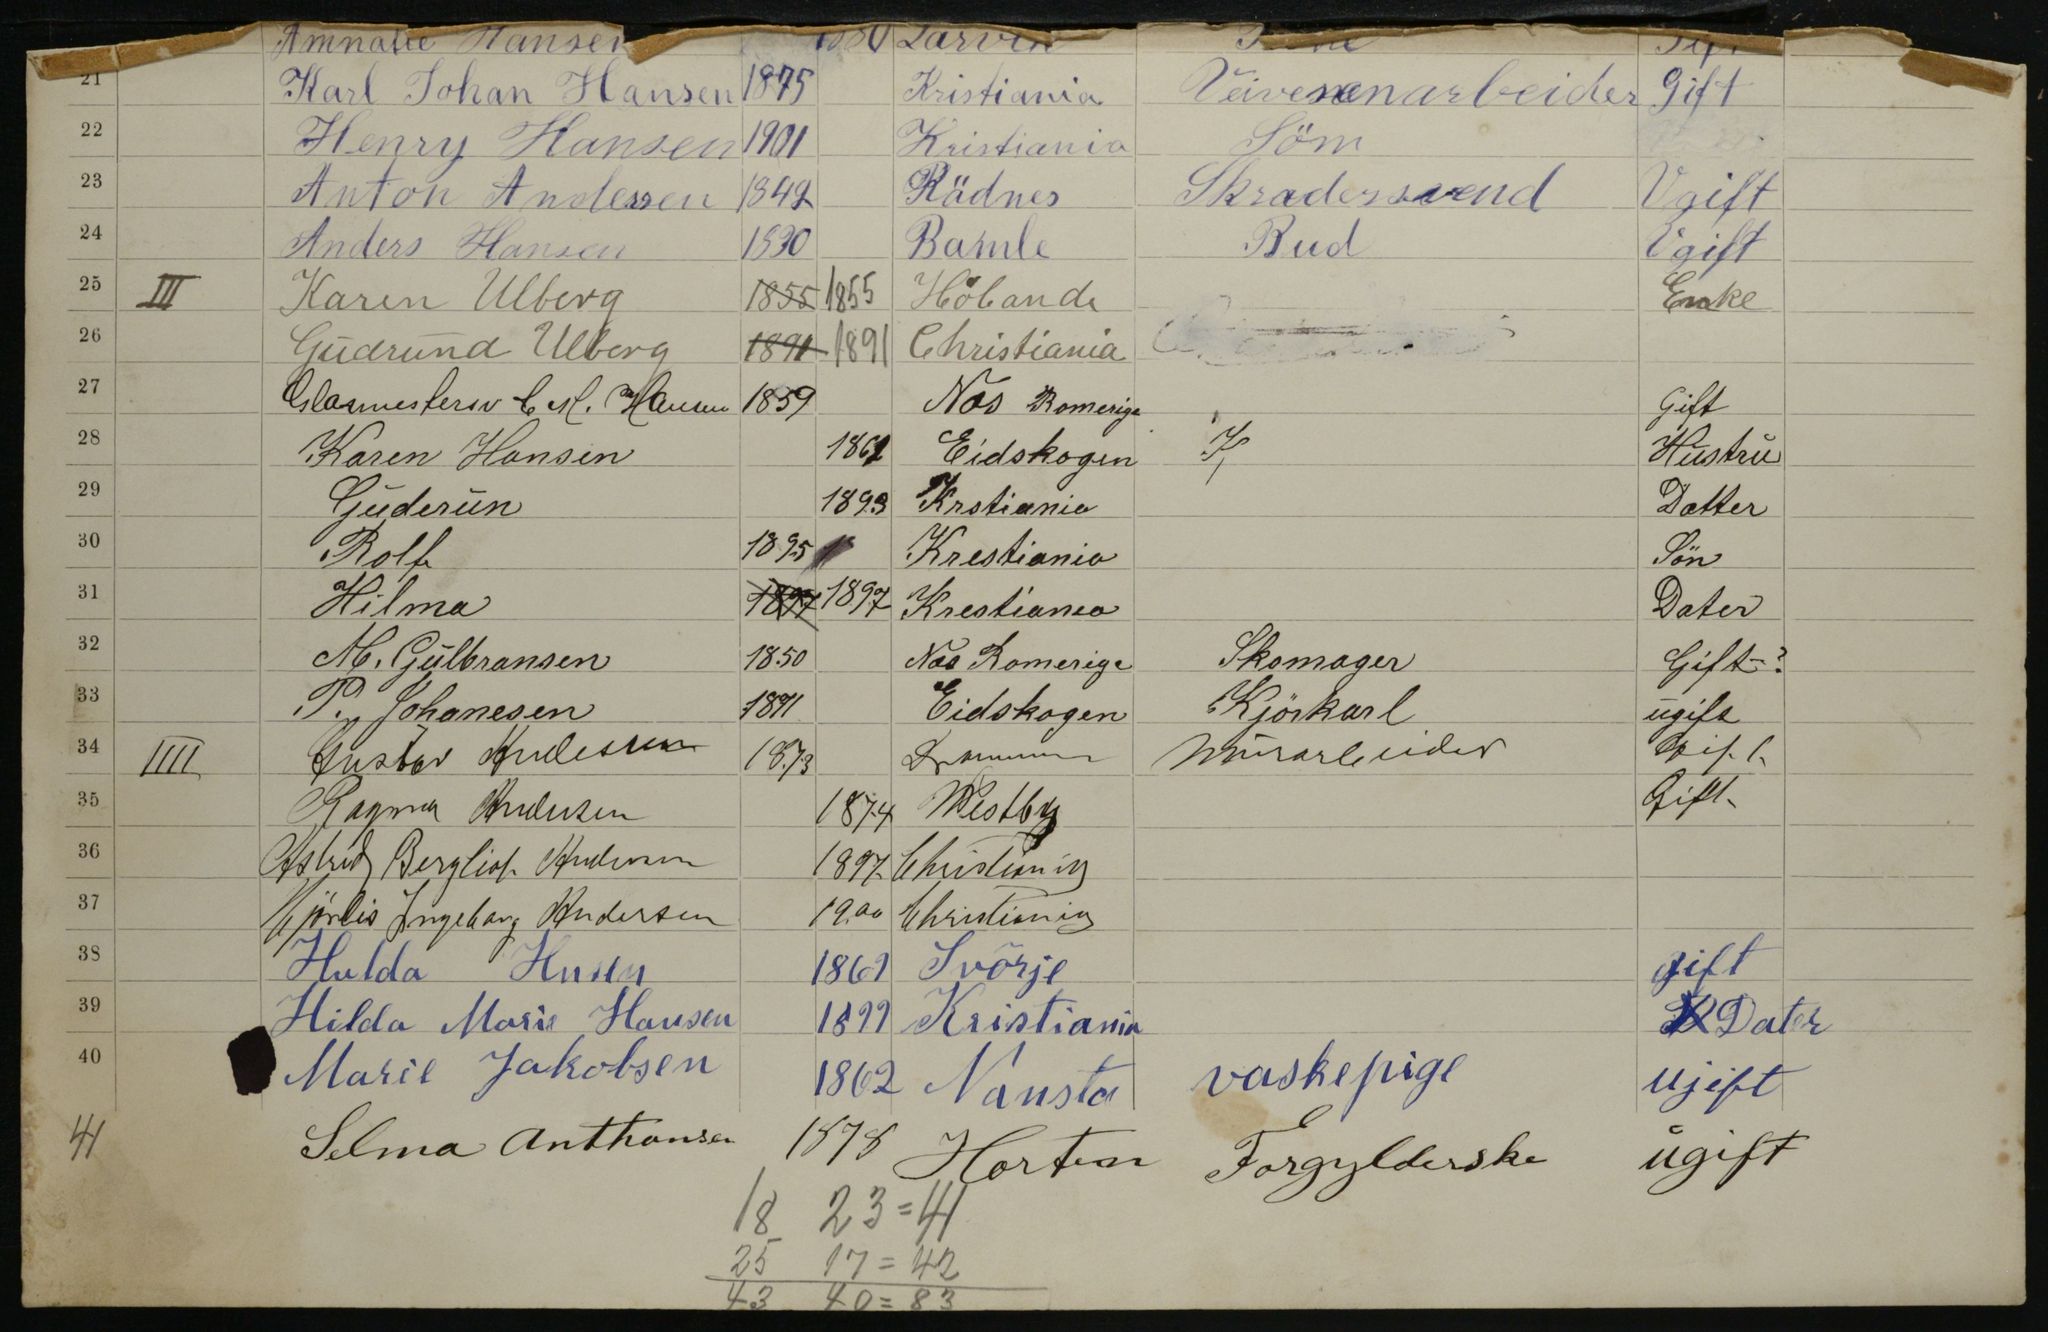 Amnalie Hansen 1880 Larvik
21 Karl Johan Hansen 1875 Kristiania Veivesenarbeider Gift
22 Henry Hansen 1901 Kristiania Söm
23 Anton Andersen 1842 Rädnes Skradersvend Ugift
24 Anders Hansen 1830 Bamle Bud Ugift
25 III Karen Ulberg 1855 1855 Höland Enke
26 Gudrund Ulberg 1891 1891 Christiania
27 Glasmestersv C M. Hansen 1859 Nas Romerige Gift
28 Karen Hansen 1861 Eidskogen Hustru
29 Guderun 1893 Krstiania Datter
30 Rolf 1895 Krestiania Sön
31 Hilma 1897 1897 Krestiania Dater
32 M. Gulbransen 1850 Nas Romerige Skomager Gift-?
33 P. Johanesen 1871 Eidskogen Kjörkarl ugift
34 IIII Gustav Andersen 1873 Drammen Murarbeider Gift
35 Ragna Andersen 1874 Westby Gift
36 Astrid Bergliot Andersen 1897 Christiania
37 Hjördis Ingeborg Andersen 1900 Christiania
38 Hulda Hnsen 1869 Svörje gift
39 Hilda Marie Hansen 1899 Kristiania Dater
40 Marie Jakobsen 1862 Nansta vaskepige ujift
41 Selma Anthonsen 1878 Horten Forgylderske ugift
18 23 = 41
25 17 = 42
43 40 = 83